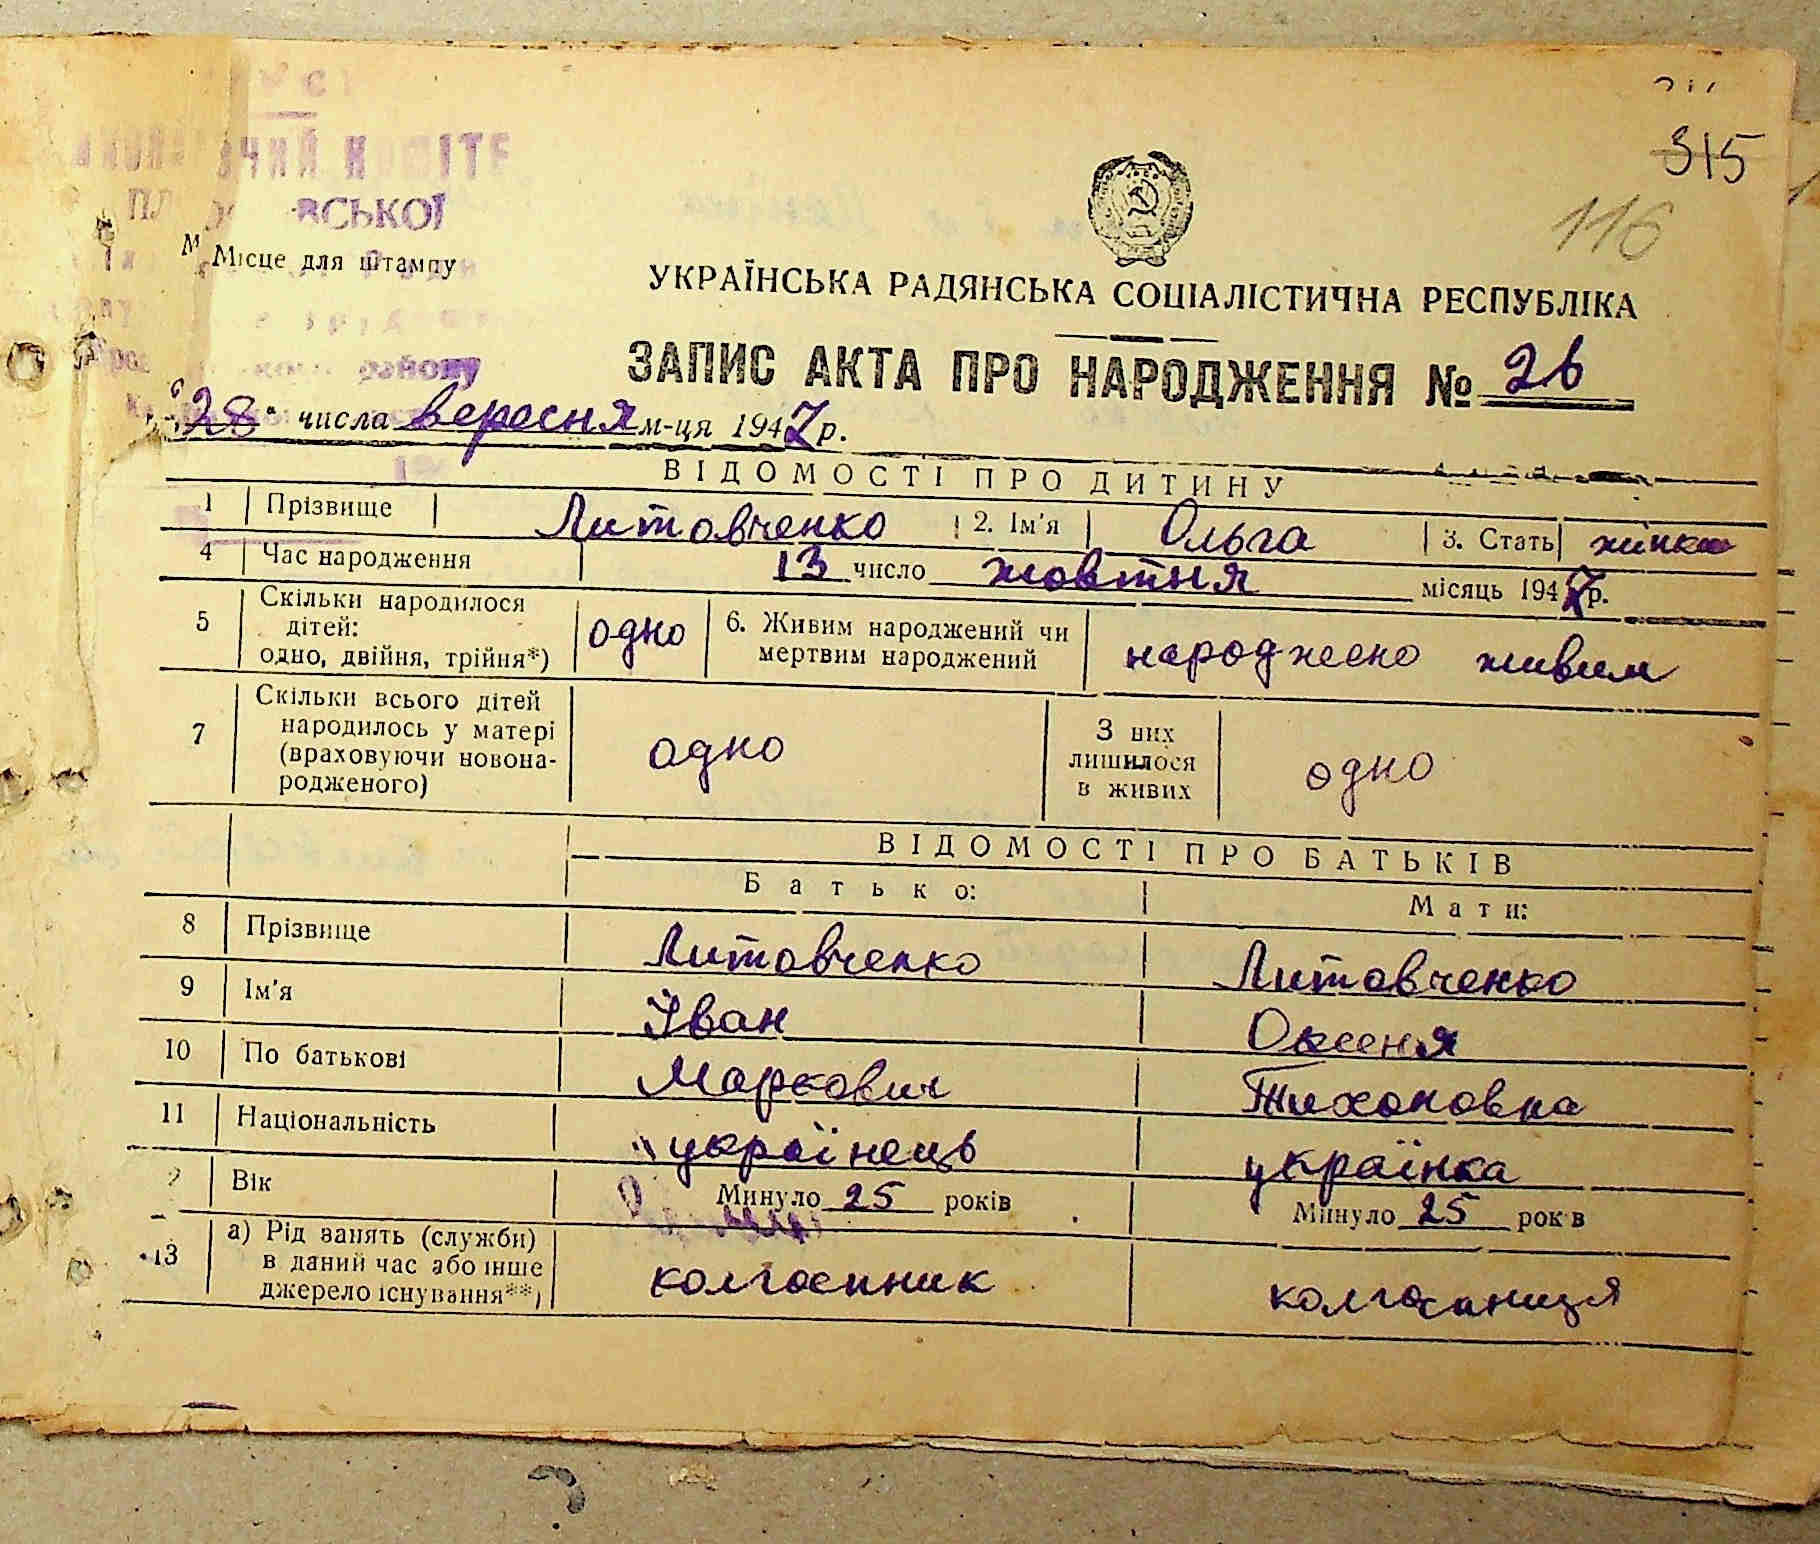 315
116
ВСЬКОЇ
Місце для штампу
УКРАЇНСЬКА РАДЯНСЬКА СОЦІАЛІСТИЧНА РЕСПУБЛІКА
ЗАПИС АКТА ПРО НАРОДЖЕННЯ № 26
району
"28" числа вересня м-ця 1947 р.
ВІДОМОСТІ ПРО ДИТИНУ
1 Прізвище Литовченко 2. Ім'я Ольга 3. Стать жінка
4 Час народження 13 число жовтня місяць 1947 р.
5 Скільки народилося дітей: одно, двійня, трійня*) одно 6. Живим народжений чи мертвим народжений народжено живим
7 Скільки всього дітей народилось у матері (враховуючи новонародженого) одно З них лишилося в живих одно
ВІДОМОСТІ ПРО БАТЬКІВ
Батько: Мати:
8 Прізвище Литовченко Литовченко
9 Ім'я Іван Оксеня
10 По батькові Маркович Тихоновна
11 Національність українець українка
2 Вік Минуло 25 років Минуло 25 рок в
13 а) Рід занять (служби) в даний час або інше джерело існування**) колгоспник колгоспниця